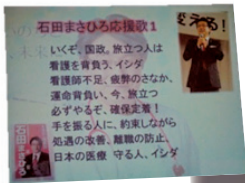 石田まさひろ応援歌1
変える!
いくぞ、国政。旅立つ人は
看護を背負う、イシダ
看護師不足、疲弊のさなか、
運命背負い、今、旅立つ
必ずやるぞ、確保定着!
手を振る人に、約束しながら
処遇の改善、離職の防止、
日本の医療 守る人、イシダ
石田まさひろ